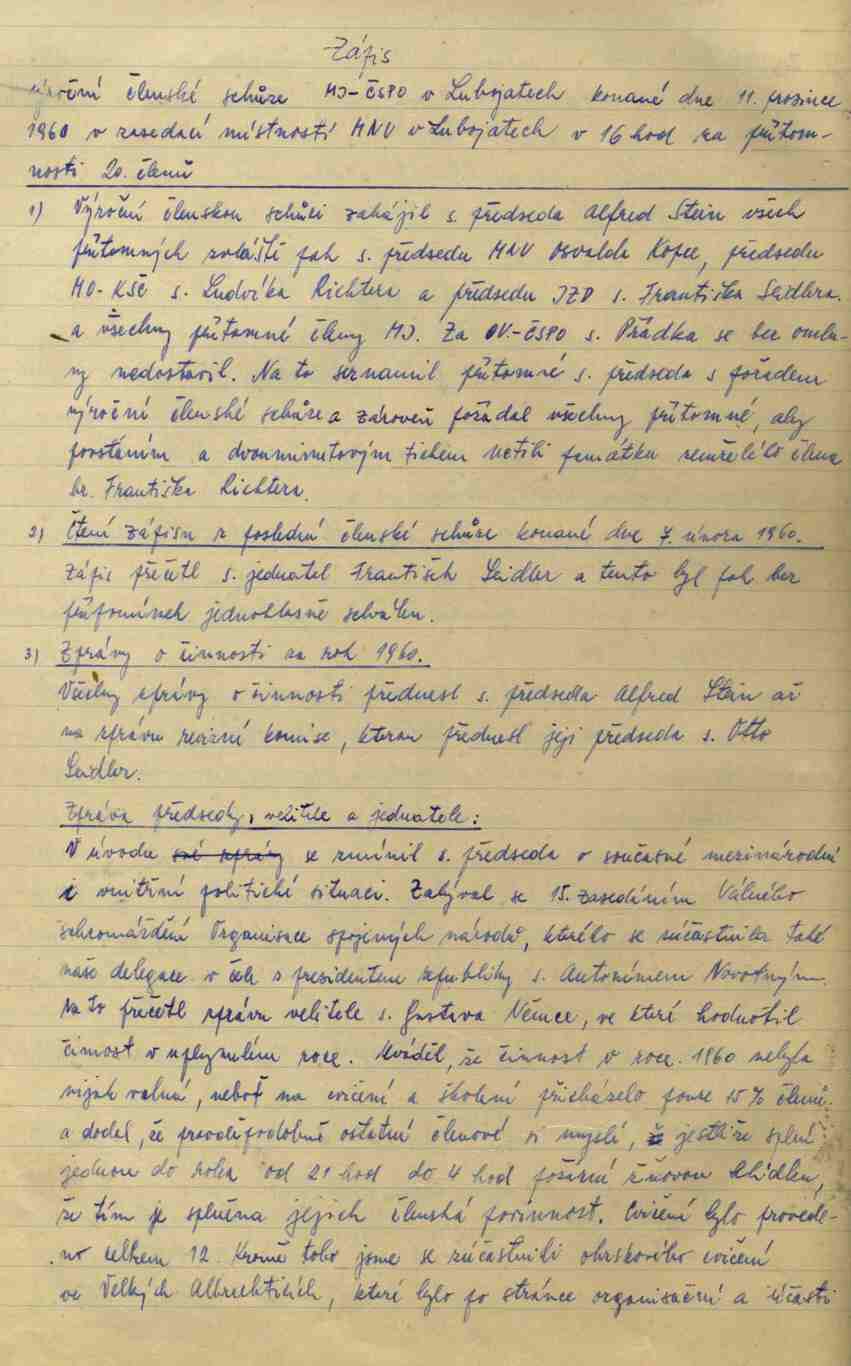 Zápis
výroční členské schůze MJ-ČSPO v Lubojatech konané dne 11. prosince
1960 v zasedací místnosti MNV v Lubojatech v 16 hod za přítom-
nosti 20. členů
1) Výroční členskou schůzi zahájil s. předseda Alfred Stein všech
přítomných zvláště pak s. předsedu MNV Osvalda Kopce, předsedu
MO-KSČ s. Ludvíka Richtera a předsedu JZD s. Františka Seidlera.
a všechny přítomné členy MJ. Za OV-ČSPO s. Přádka se bez omlu-
vy nedostavil. Na to seznamil přítomné s. předseda s pořadem
výroční členské schůze a zároveň požádal všechny přítomné, aby
povstáním a dvouminutovým tichem uctili památku zemřelého člena
br. Františka Richtera.
2) Čtení zápisu z poslední členské schůze konané dne 7. února 1960.
Zápis přečetl s. jednatel František Seidler a tento byl pak bez
připomínek jednohlasně schválen.
3) Zprávy o činnosti za rok 1960.
Všechny zprávy o činnosti přednesl s. předseda Alfred Stein až
na zprávu revizní komise, kterou přednesl její předseda s. Otto
Seidler.
Zpráva předsedy, velitele a jednatele:
V úvodu své zprávy se zmínil s. předseda o současné mezinárodní
i vnitřní politické situaci. Zabýval se 15. zasedáním Valného
schromáždění Organisace spojených národů, kterého se zúčastnila také
naše delegace v čele s prezidentem republiky s. Antonínem Novotným.
Na to přečetl zprávu velitele s. Gustava Němce, ve které hodnotil
činnost v uplynulém roce. Uváděl, že činnost v roce 1960 nebyla
nijak valná, neboť na cvičení a školení přicházelo pouze 15 % členů.
a dodal, že pravděpodobně ostatní členové si myslí, jestliže splní
jednou do roka od 21 hod do 4 hod požární žňovou hlídku,
že tím je splněna jejich členská povinnost. Cvičení bylo provede-
no celkem 12. Kromě toho jsme se zúčastnili okrskového cvičení
ve Velkých Albrechticích, které bylo po stránce organisační a účasti